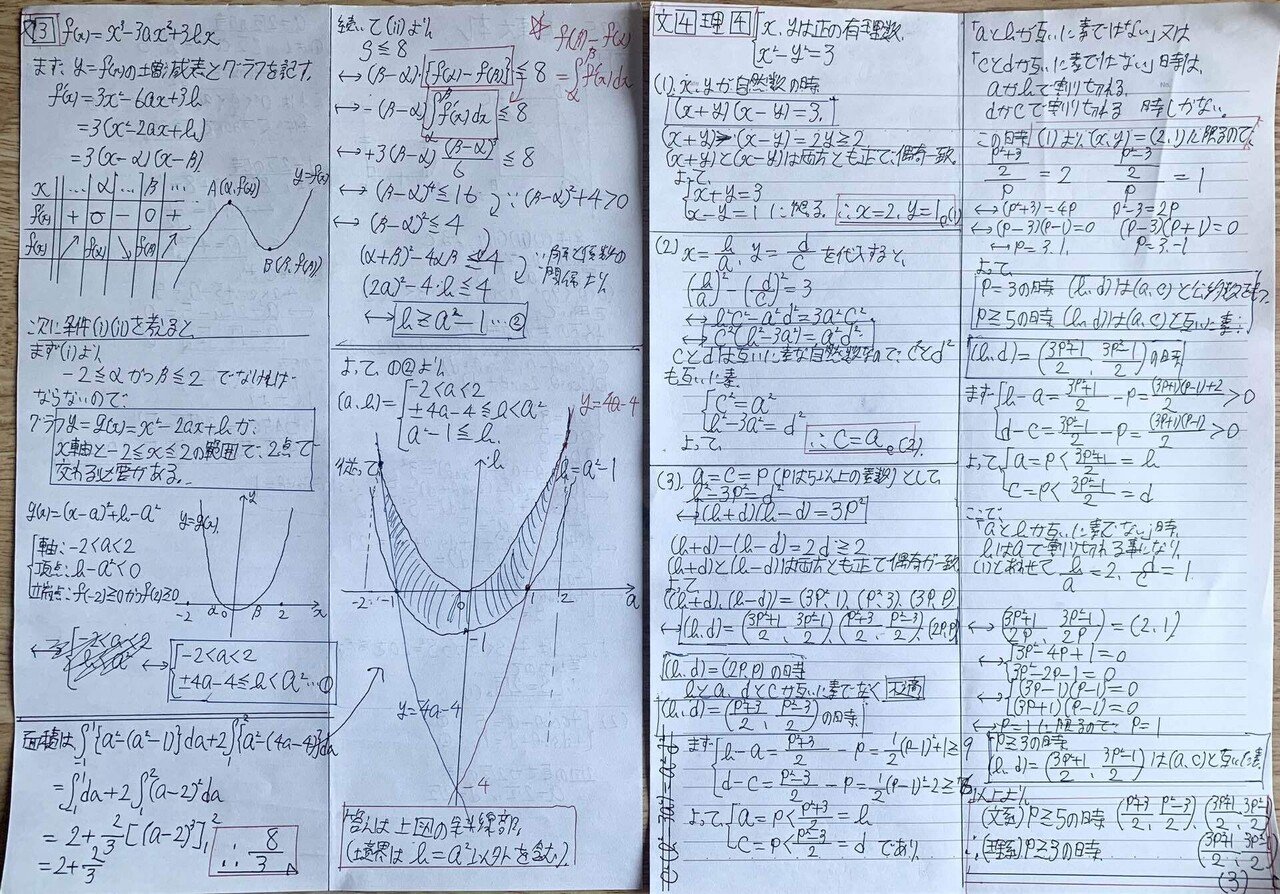 文3 f(x)=x³-3ax²+3bx
まず、y=f(x)の増減表とグラフを記す。
f'(x)=3x²-6ax+3b
=3(x²-2ax+b)
=3(x-α)(x-β)
x … α … β …
f'(x) + 0 - 0 +
f(x) ↗ f(α) ↘ f(β) ↗
A(α,f(α))
y=f(x)
B(β,f(β))
次に条件(i)(ii)を考えると、
まず(i)より
-2≦αかつβ≦2 でなければ
ならないので、
グラフy=g(x)=x²-2ax+bが、
x軸と-2≦x≦2の範囲で、2点で
交わる必要がある。
g(x)=(x-a)²+b-a²
軸:-2<a<2
頂点:b-a²<0
立端点:f(-2)≧0かつf(2)≧0
y=g(x)
y
-2 α 0 β 2 x
↔ -2<a<2
±4a-4≦b<a² …①
面積は、∫₋₁¹{a²-(a²-1)}da+2∫₁²{a²-(4a-4)}da
=∫₋₁¹da+2∫₁²(a-2)²da
=2+2/3[(a-2)³]₁²
=2+2/3
∴ 8/3
続いて(ii)より
S≦8
↔(β-α)・{f(α)-f(β)}≦8
※ f(β)-f(α)
=∫αβ f'(x)dx
↔-(β-α)∫αβ f'(x)dx≦8
↔+3(β-α)(β-α)³/6≦8
↔(β-α)⁴≦16 ∵(β-α)²+4>0
↔(β-α)²≦4
(α+β)²-4αβ≦4 ∵解と係数の
関係より
(2a)²-4・b≦4
↔ b≧a²-1 …②
よって、①②より
(a,b)= -2<a<2
±4a-4≦b<a²
a²-1≦b
y=4a-4
従って
b
b=a²-1
-2 -1 0 1 2 a
-1
y=4a-4
-4
答えは上図の斜線部。
(境界は b=a²以外を含む。)
文4 理4 x,yは正の有理数
x²-y²=3
(1) x,yが自然数の時
(x+y)(x-y)=3
(x+y)-(x-y)=2y≧2
(x+y)と(x-y)は両方とも正で、偶奇一致
よって、
x+y=3
x-y=1 に限る。 ∴x=2, y=1 (1)
(2) x=b/a, y=d/c を代入すると、
(b/a)²-(d/c)²=3
↔b²c²-a²d²=3a²c²
↔c²(b²-3a²)=a²d²
cとdは互いに素な自然数なので、c²とd²
も互いに素
c²=a²
b²-3a²=d²
よって、 ∴c=a (2)
(3) a=c=p (pは5以上の素数)として
b²-3p²=d²
↔(b+d)(b-d)=3p²
(b+d)-(b-d)=2d≧2
(b+d)と(b-d)は両方とも正で偶奇が一致
よって
((b+d),(b-d))=(3p²,1),(p²,3),(3p,p)
↔(b,d)=((3p²+1)/2, (3p²-1)/2),((p²+3)/2, (p²-3)/2),(2p,p)
(b,d)=(2p,p)の時
bとa、dとcが互いに素でなく 不適
(b,d)=((p²+3)/2, (p²-3)/2)の時
まず b-a=(p²+3)/2-p=1/2(p-1)²+1≧9
d-c=(p²-3)/2-p=1/2(p-1)²-2≧
よって、 a=p<(p²+3)/2=b
c=p<(p²-3)/2=d であり
「aとbが互いに素ではない」又は
「cとdが互いに素ではない」時は、
aがbで割り切れる
dがcで割り切れる 時しかない。
この時(1)より(x,y)=(2,1)に限るので、
(p²+3)/2/p=2 (p²-3)/2/p=1
↔(p²+3)=4p p²-3=2p
↔(p-3)(p-1)=0 (p-3)(p+1)=0
↔p=3,1 p=3,-1
よって、
p=3の時 (b,d)は(a,c)と公約数をもつ
p≧5の時 (b,d)は(a,c)と互いに素
(b,d)=((3p²+1)/2, (3p²-1)/2)の時
まず b-a=(3p²+1)/2-p=((3p+1)(p-1)+2)/2>0
d-c=(3p²-1)/2-p=(3p+1)(p-1)/2>0
よって、 a=p<(3p²+1)/2=b
c=p<(3p²-1)/2=d
ここで、
「aとbが互いに素でない」時
bはaで割り切れる事になり
(1)とあわせて b/a=2, d/c=1
↔((3p²+1)/2p, (3p²-1)/2p)=(2,1)
↔ 3p²-4p+1=0
3p²-2p-1=0
↔ (3p-1)(p-1)=0
(3p+1)(p-1)=0
↔p=1に限るので、p=1
p≧3の時
(b,d)=((3p²+1)/2, (3p²-1)/2)は(a,c)と互いに素
以上より
(文系)p≧5の時 ((p²+3)/2, (p²-3)/2), ((3p²+1)/2, (3p²-1)/2)
∴(理系)p≧3の時 ((3p²+1)/2, (3p²-1)/2)
(3)